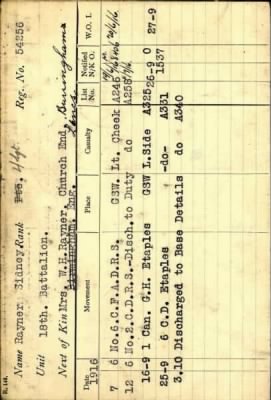 R. 146.
Name Rayner, Sidney Rank Pte. A/Sgt. Reg. No. 54256
Unit 18th. Battalion.
Next of Kin Mrs. W.H. Rayner, Church End, Burringham
Birmingham, Eng. Lincs.
Date Movement Casualty List No. Notified N/K O. W.O. L
1916
7 6 No.6.C.F.A.D.R.S. GSW. Lt. Cheek A245 20/6/16
12 6 No.2.C.D.R.S.-Disch.to Duty do A255
16-9 1 Can. G.H. Etaples GSW L.Side A325 26-9 O 27-9
1537
25-9 6 C.D. Etaples -do- A331
3.10 Discharged to Base Details do A340